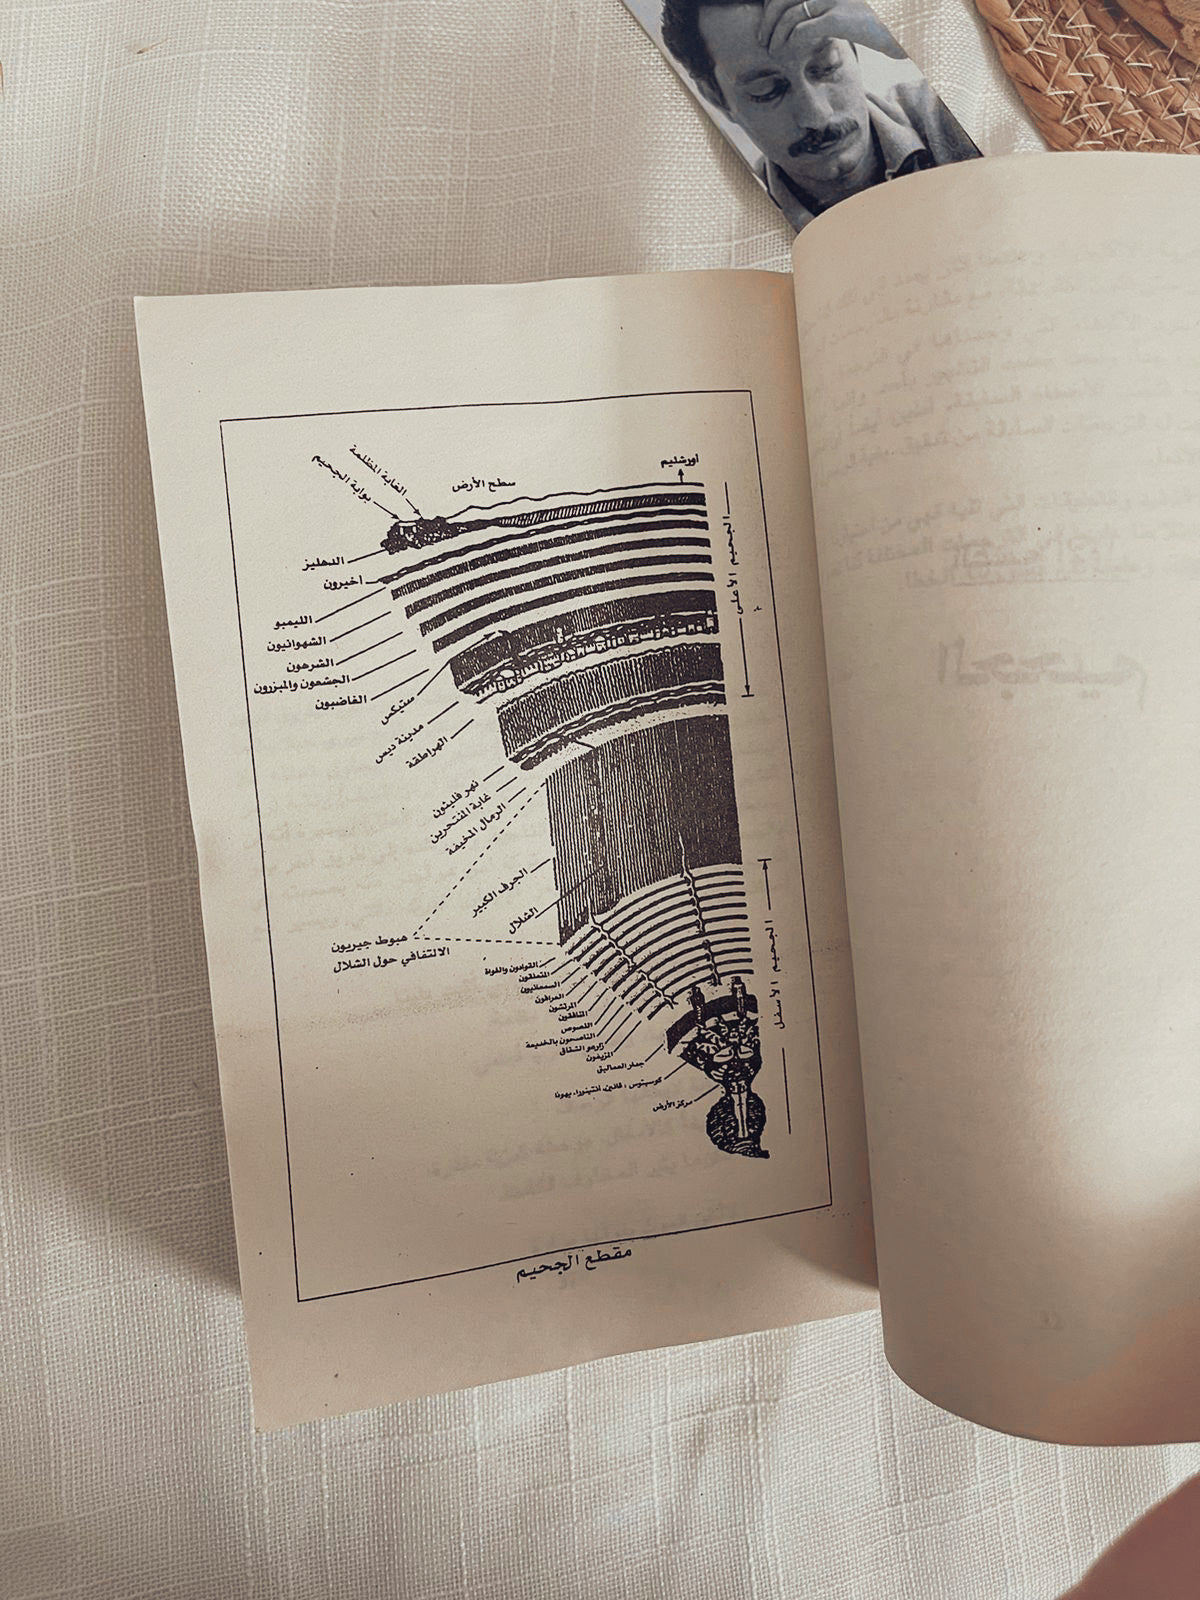 الغابة المظلمة
بوابة الجحيم
سطح الأرض
اورشليم
الدهليز
أخيرون
الليمبو
الشهوانيون
الشرهون
الجشعون والمبزرون
الغاضبون
ستيكس
مدينة ديس
الهراطقة
نهر فليثون
غابة المنتحرين
الرمال المخيفة
الجرف الكبير
الشلال
هبوط جيريون
الالتفافي حول الشلال
القوادون والغواة
المتملقون
السمعانيون
العرافون
المرتشون
المنافقون
اللصوص
الناصحون بالخديعة
زارعو الشقاق
المزيفون
جدار العماليق
كوسيتوس ، قايين، انتينورا، يهوذا
مركز الأرض
الجحيم الأعلى
الجحيم الأسفل
مقطع الجحيم